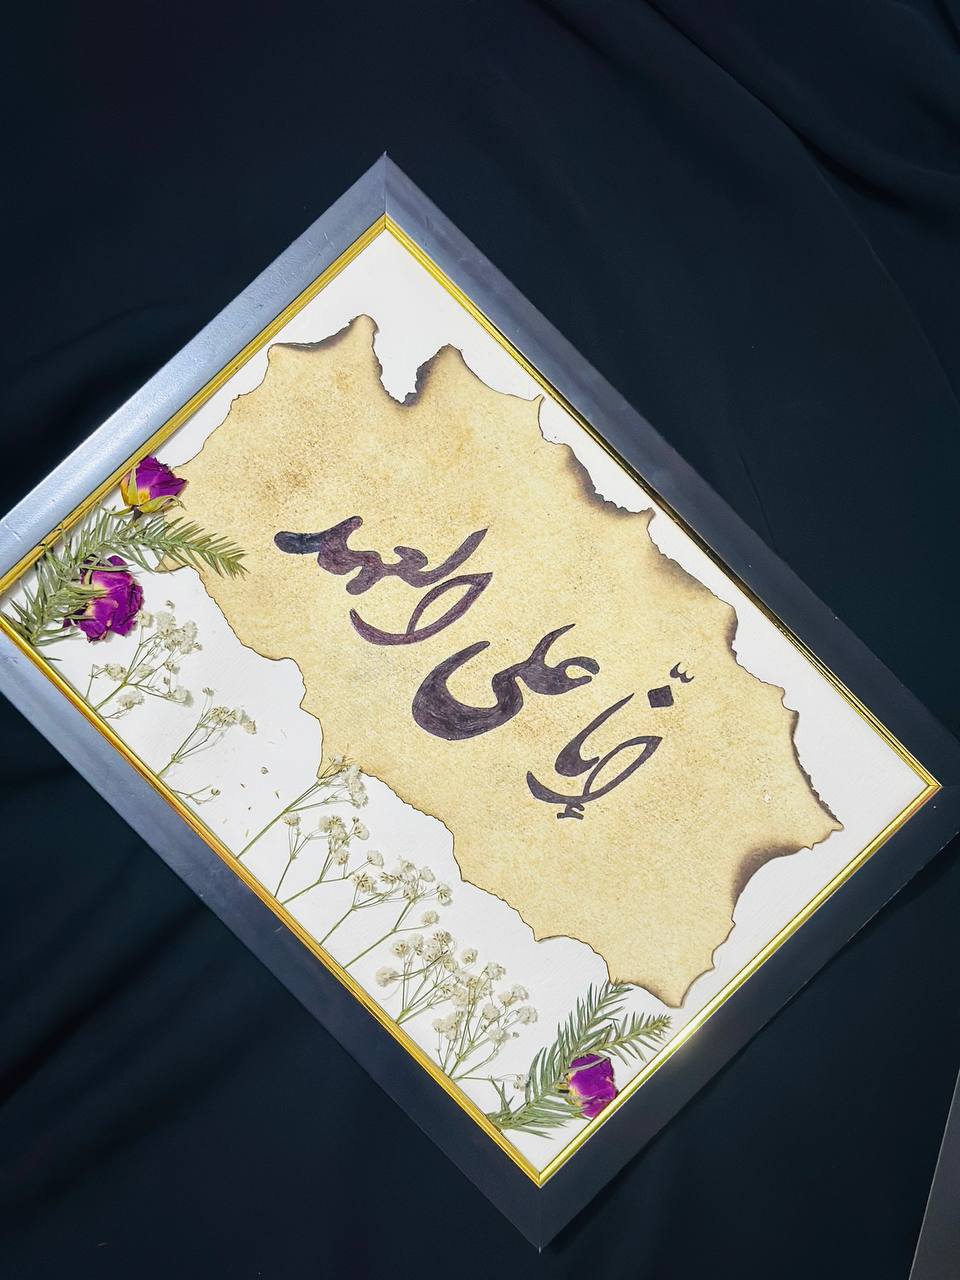 إنّا على العهد